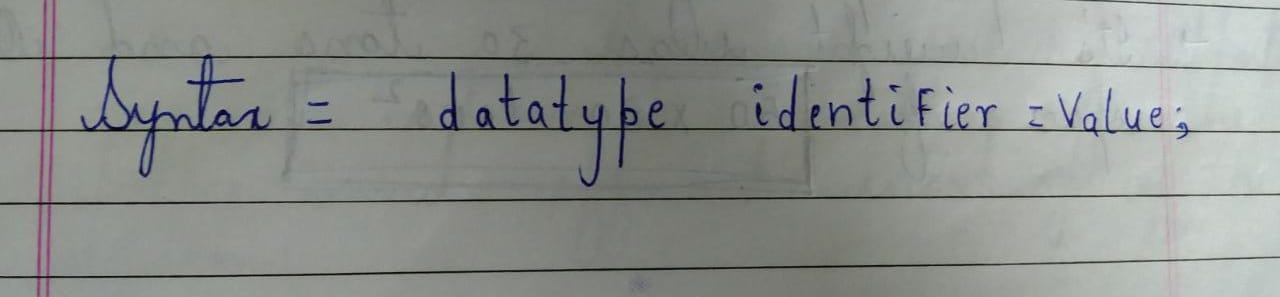 Syntax = datatype identifier = Value;